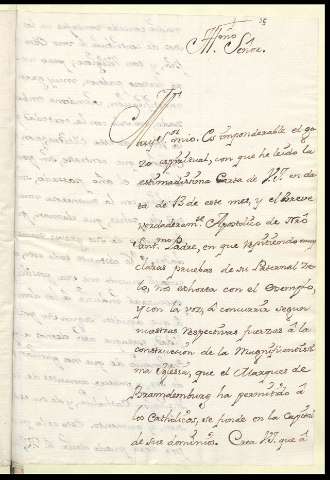 15
Señor.
Muy S.or mio. Es imponderable el go-
zo espiritual, con que he leido la
estimadissima Carta de V.I. en da-
ta de 13 de este mes, y el Breve
verdaderam.te Apostolico de Ntro
Sant.mo Padre, en que repitiendo muy
claras pruebas de su Paternal Ze-
lo, nos exhorta con el Exemplo,
y con la voz, à concurrir segun
nuestras respectivas fuerzas à la
construccion de la Magnificentissi-
ma Iglesia, que el Marques de
Bramdemburg ha permitido à
los Catholicos, se funde en la Capital
de sus dominios. Crea V.I. que à